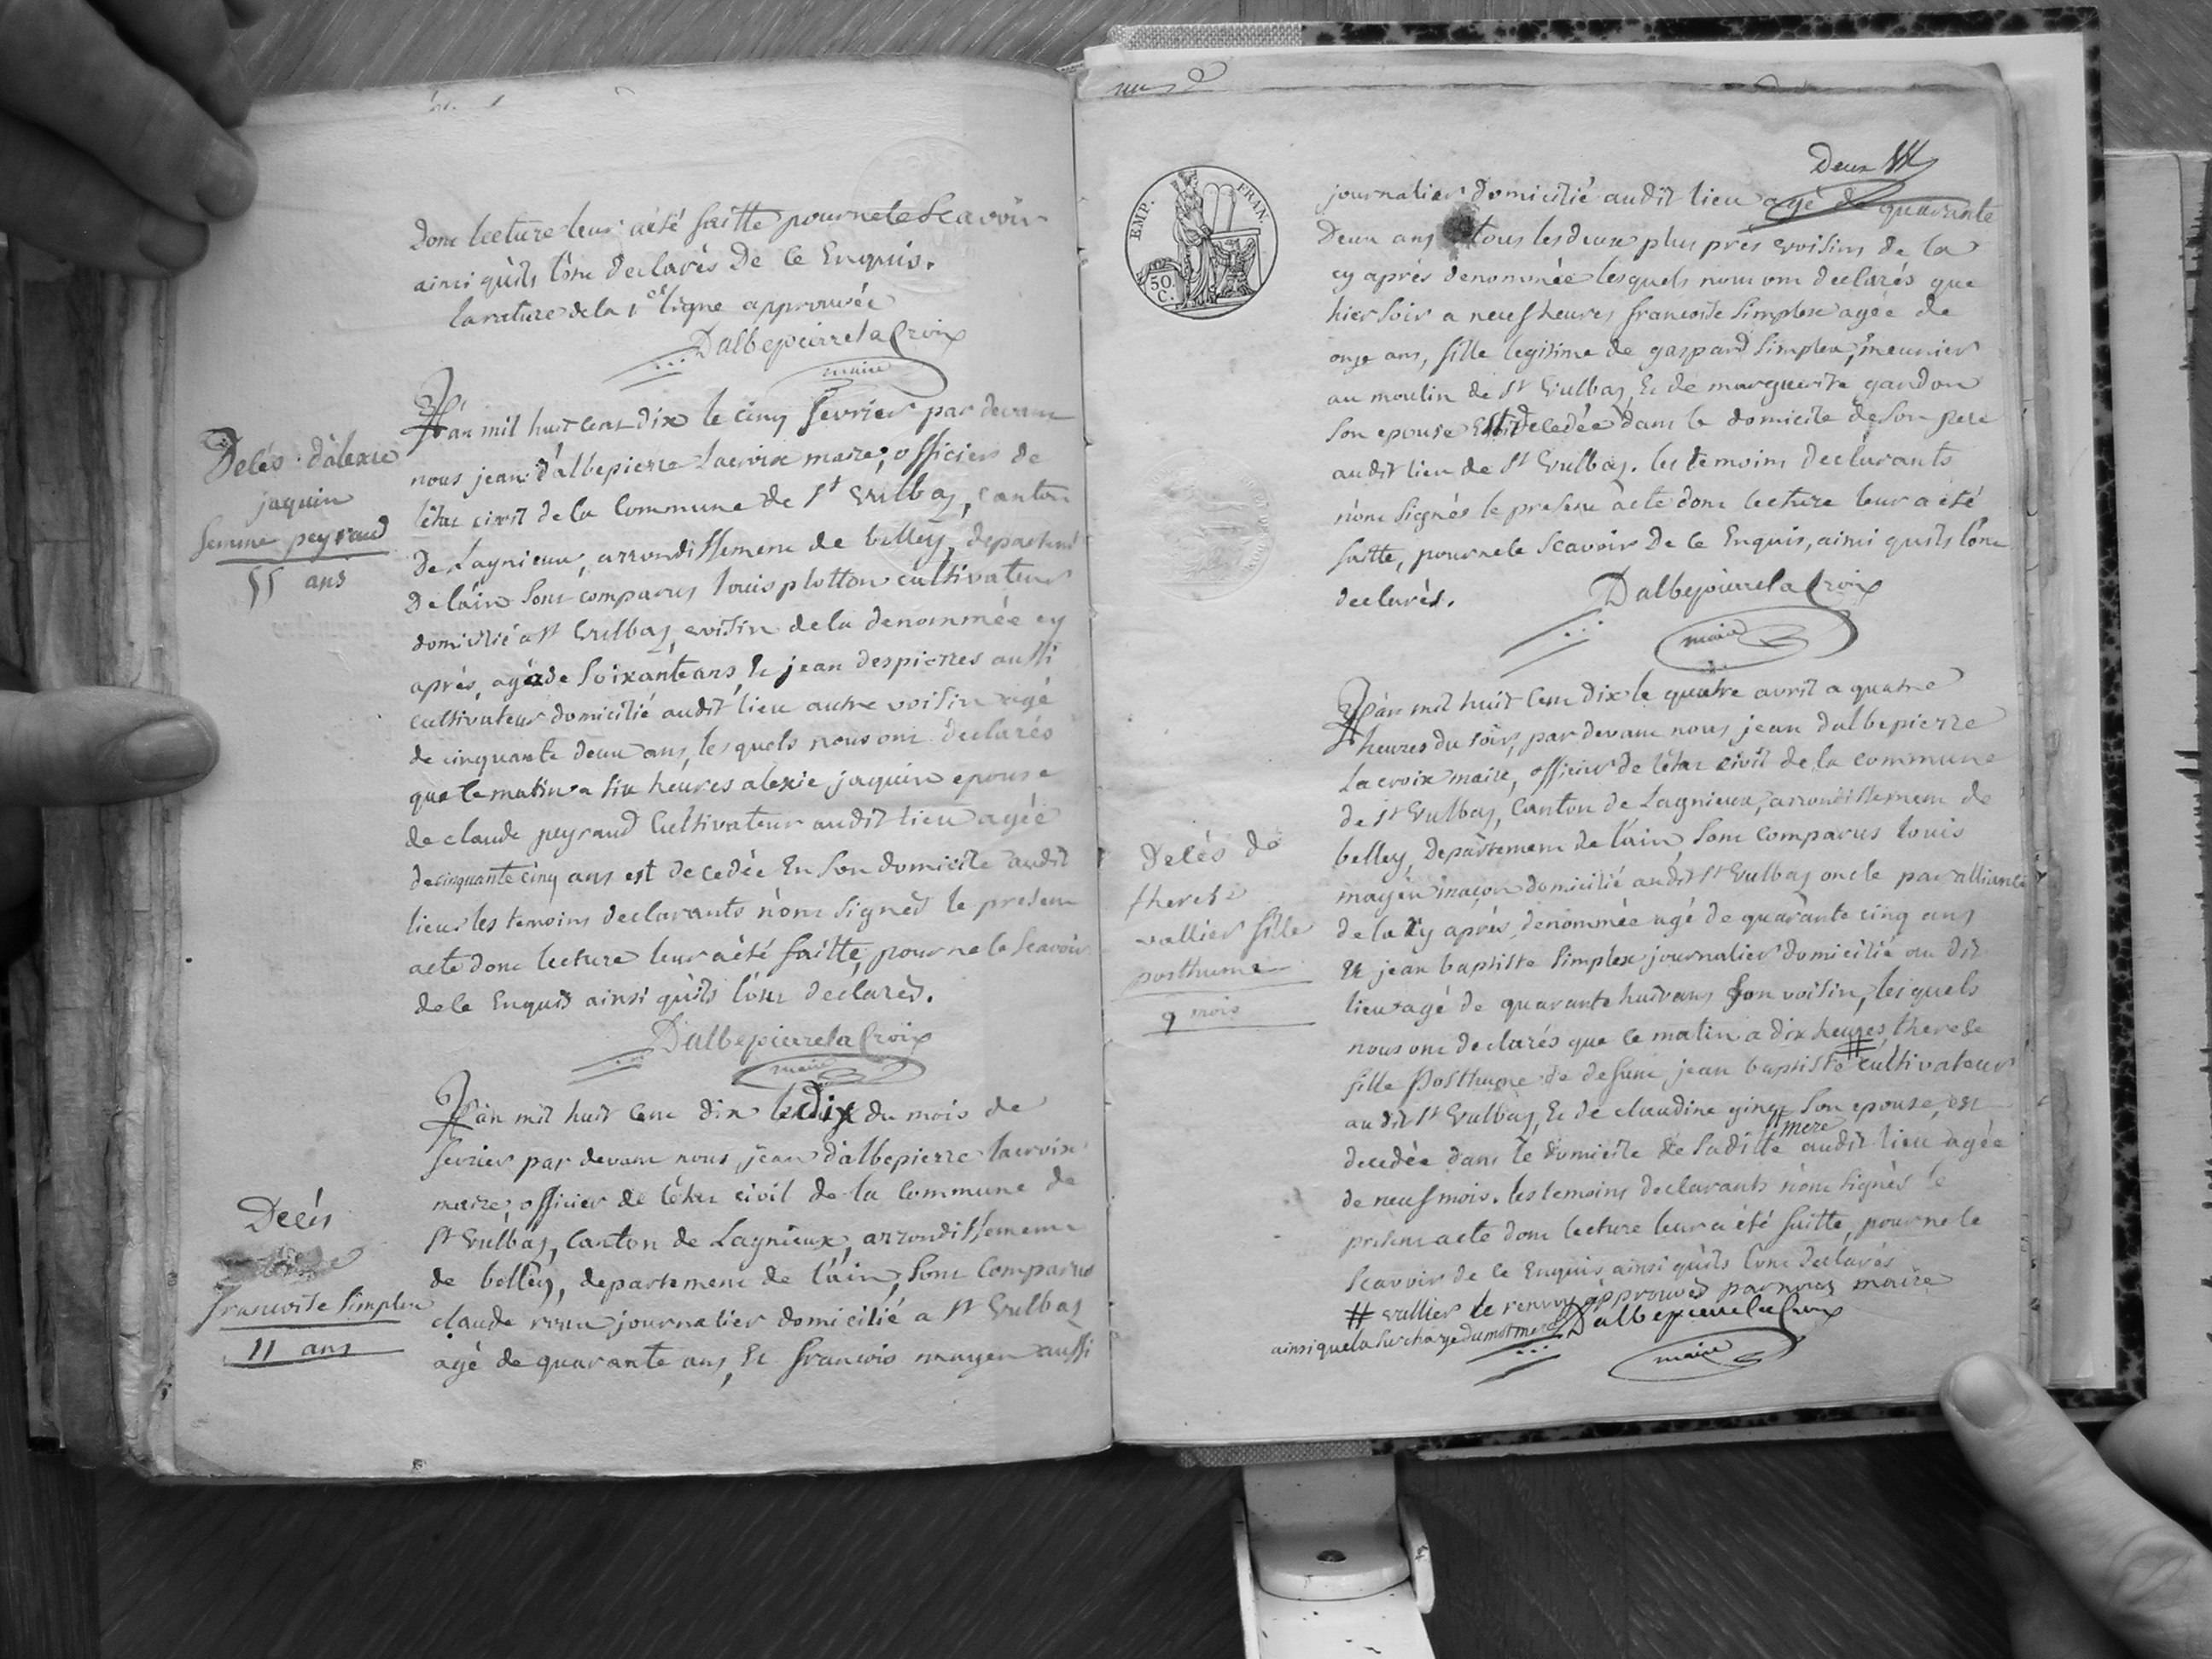 donc lecture leur a été faitte pour ne le scavoir
ainsi qu'ils l'ont declarés de ce Enquis.
la rature de la 1ere ligne approuvée
Dalbepierre la Croix
maire
Delés d'alexie
jaquin
femme peyraud
55 ans
L'an mil huit cent dix le cinq fevrier par devant
nous jean d'albepierre Lacroix maire, officier de
l'état civil de la Commune de St Vulbas, canton
de Lagnieux, arrondissement de belley, departemt
de l'ain sont comparus louis plotton cultivateur
domicilié a St Vulbas, voisin de la denommée cy
après, agé de soixante ans, Et jean despierres aussi
cultivateur domicilié audit lieu autre voisin agé
de cinquante deux ans, lesquels nous ont declarés
que ce matin a six heures alexie jaquin epouse
de claude peyraud Cultivateur audit lieu agée
de cinquante cinq ans est decedée En son domicile audit
lieu les temoins declarants n'ont signés le present
acte dont lecture leur a été faitte, pour ne le scavoir
de ce Enquis ainsi qu'ils l'ont declarés.
Dalbepierre la Croix
maire
Decés
francoise simplex
11 ans
L'an mil huit cent dix le dix du mois de
fevrier par devant nous, jean d'albepierre lacroix
maire, officier de l'état civil de la Commune de
St Vulbas, Canton de Lagnieux, arrondissement
de belley, departement de l'ain, sont Comparus
claude roux journalier domicilié a St Vulbas
agé de quarante ans, Et francois mayen aussi
EMP. FRAN.
50 C.
Deux
journalier domicilié audit lieu agé de quarante
Deux ans tous les deux plus près voisins de la
cy après denommée lesquels nous ont declarés que
hier soir a neuf heures francoise simplex agée de
onze ans, fille legitime de gaspard simplex, meunier
au moulin de St Vulbas, Et de marguerite gandon
son epouse Est decedée dans le domicile de son pere
audit lieu de St Vulbas. les temoins declarants
n'ont signés le present acte dont lecture leur a été
faitte, pour ne le scavoir de ce Enquis, ainsi qu'ils l'ont
declarés.
Dalbepierre la Croix
maire
Delés de
therese
vallier fille
posthume
9 mois
L'an mil huit cent dix le quatre avril a quatre
heures du soir, par devant nous jean dalbepierre
Lacroix maire, officier de l'état civil de la commune
de St Vulbas, Canton de Lagnieux, arrondissement de
belley, Departement de l'ain, sont Comparus louis
mayen maçon domicilié audit St Vulbas oncle par alliance
de la cy après denommée agé de quarante cinq ans
Et jean baptiste simplex journalier domicilié au dit
lieu agé de quarante huit ans son voisin, lesquels
nous ont declarés que ce matin a dix heures therese
fille Posthume de defunt jean baptiste # cultivateur
au dit St Vulbas, Et de claudine ginet son epouse, est
decedée dans le domicile de saditte mere audit lieu agée
de neuf mois. les temoins declarants n'ont signés le
present acte dont lecture leur a été faitte, pour ne le
scavoir de ce Enquis ainsi qu'ils l'ont declarés
# vallier le renvoy approuvés par nous maire
ainsi que la surcharge du mot mere
Dalbepierre la Croix
maire